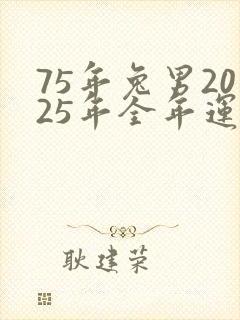 75年兔男20
25年全年運
耿建荣